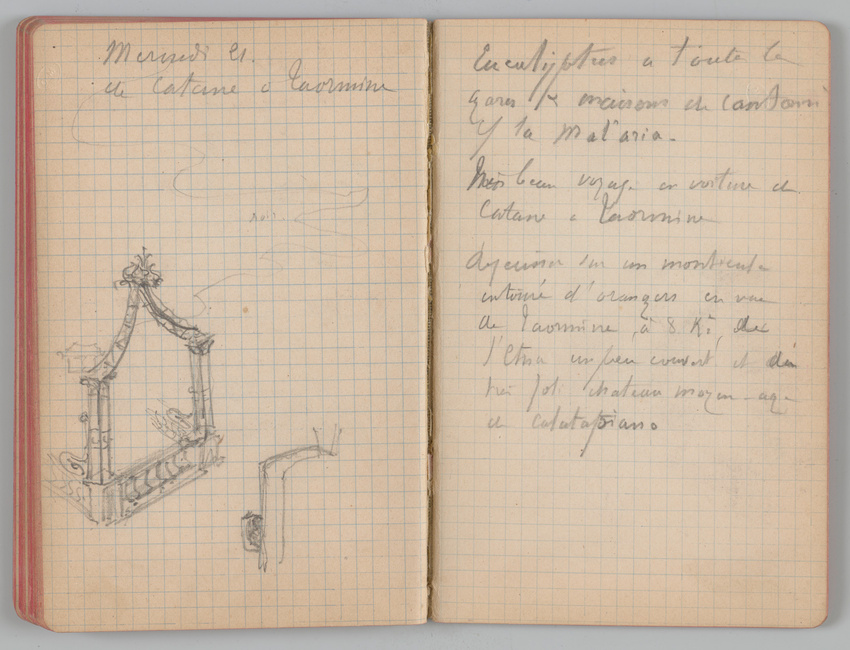 Mercredi 21.
de Catane à Taormine
Eucalyptus a toute le
gares & maisons de cantoni
la Mal'aria.
Très beau voyage en voiture de
Catane à Taormine
dejeuner sur un monticule
entouré d'orangers en vue
de Taormine, à 8 K. de
l'Etna un peu couvert et du
très joli chateau moyen-age
de Calatabiano